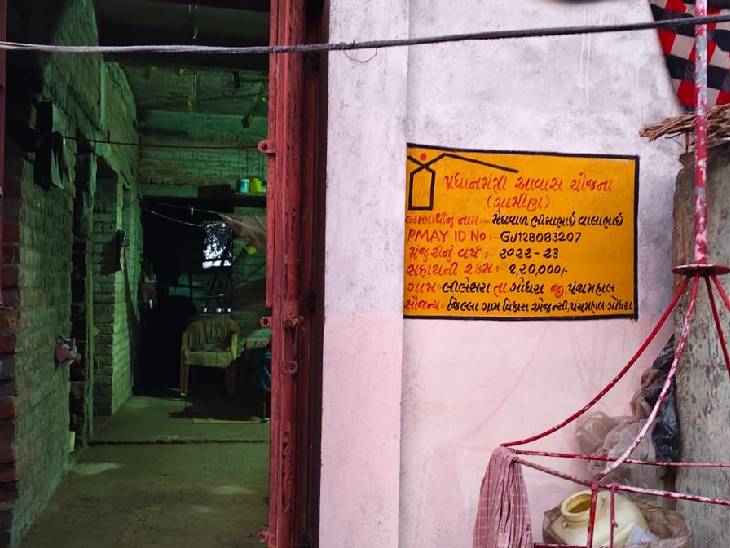 પ્રધાનમંત્રી આવાસ યોજના
(ગ્રામીણ)
લાભાર્થીનું નામ:- મેઘવાળ ભીમાભાઇ વાલાભાઇ
PMAY ID No:- GJ128083207
મંજુરીનું વર્ષ:- ૨૦૨૨-૨૩
સહાયની રકમ:- ૧,૨૦,૦૦૦/-
ગામ:- લીલેસરા તા. ગોધરા જી. પંચમહાલ
સૌજન્ય:- જિલ્લા ગ્રામ વિકાસ એજન્સી, પંચમહાલ ગોધરા